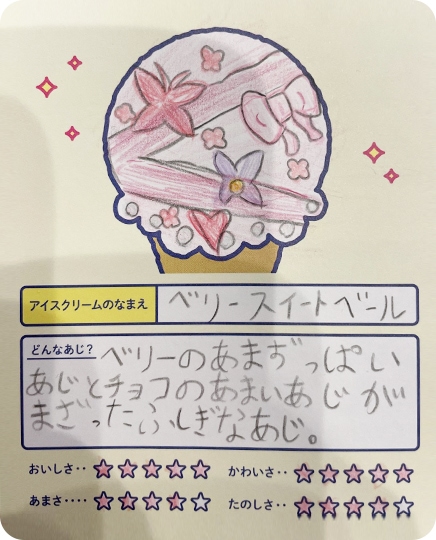 アイスクリームのなまえ
ベリースイートベール
どんなあじ?
ベリーのあまずっぱい
あじとチョコのあまいあじが
まざったふしぎなあじ。
おいしさ‥ ★★★★★
かわいさ‥ ★★★★★
あまさ‥‥ ★★★★☆
たのしさ‥ ★★★★☆